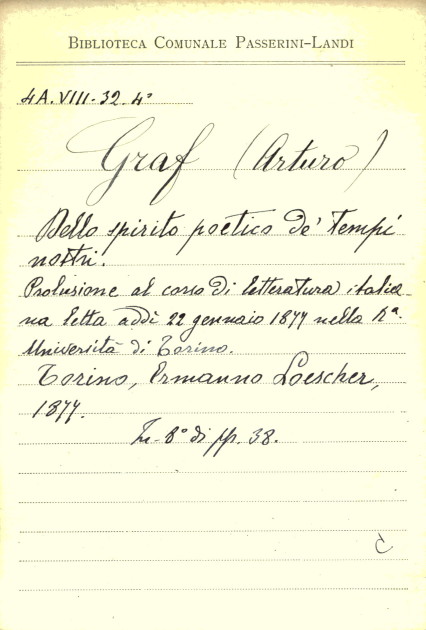 BIBLIOTECA COMUNALE PASSERINI-LANDI
4A.VIII-32.4°
Graf (Arturo)
Dello spirito poetico de' tempi
nostri.
Prolusione al corso di letteratura italia-
na letta addì 22 gennaio 1877 nella Rª.
Università di Torino.
Torino, Ermanno Loescher,
1877.
In-8° di pp. 38.
C